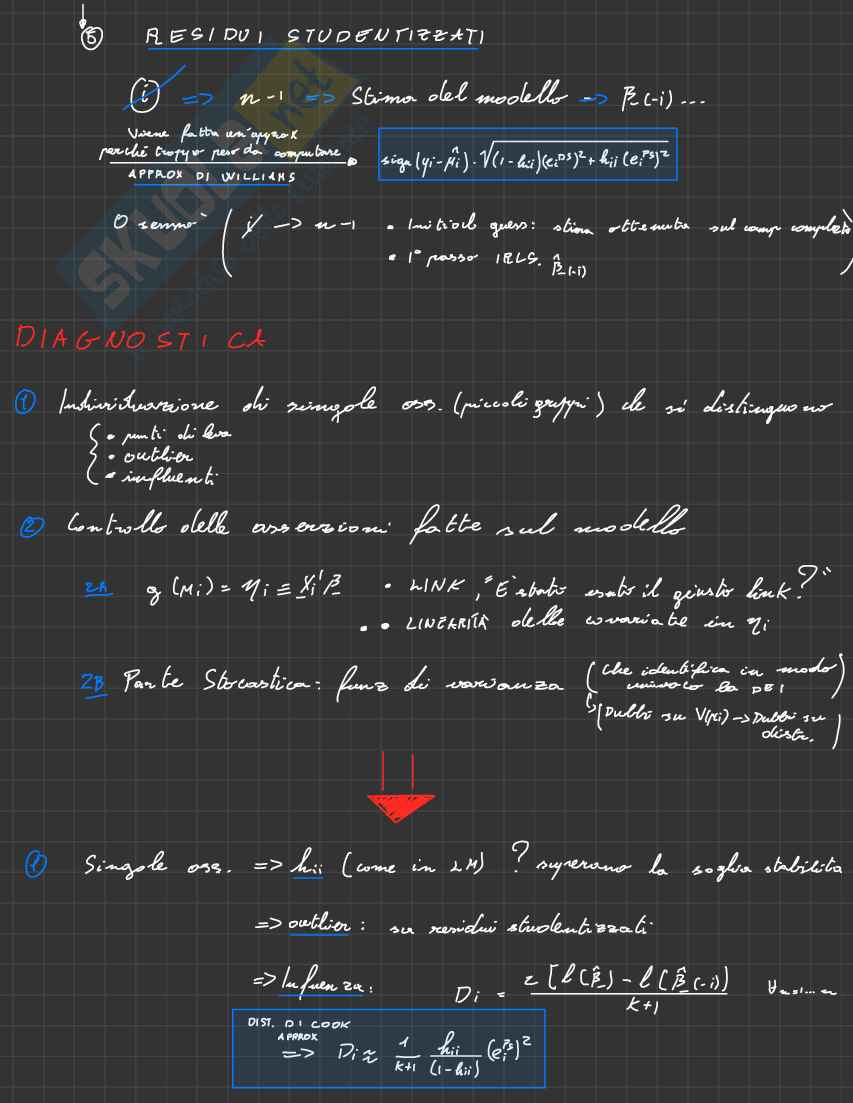 ⑤ RESIDUI STUDENTIZZATI
i => n-1 => Stima del modello -> β(-i) ...
Viene fatta un'approx
perché troppo peso da computare
APPROX DI WILLIAMS
sign(yi-μ̂i)·√(1-hii)(ei^DS)²+hii(ei^PS)²
O sennò ( i -> n-1 • Initial guess: stima ottenuta sul camp completo
• 1° passo IRLS. β̂(-i) )
DIAGNOSTICA
① Individuazione di singole oss. (piccoli gruppi) che si distinguono
{ • punti di leva
• outlier
• influenti
② Controllo delle asserzioni fatte sul modello
2A g(μi) = ηi ≡ Xi'β • LINK, "E' stato usato il giusto link?"
• • LINEARITÀ delle covariate in ηi
2B Parte Stocastica: funz di varianza (che identifica in modo
univoco la DEI)
↳(Dubbi su V(μi) -> Dubbi su
distr.)
① Singole oss. => hii (come in LM) ? superano la soglia stabilita
=> outlier: su residui studentizzati
=> Influenza: Di = 2[l(β̂) - l(β̂(-i))] / K+1 ∀ = 1... n
DIST. DI COOK
APPROX
=> Di ≈ 1/K+1 hii/(1-hii) (ei^PS)²